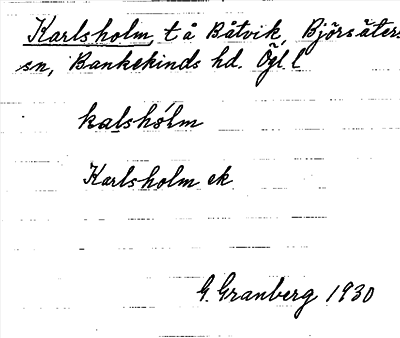 Karlsholm, t å Båtvik, Björsäters
sn, Bankekinds hd. Ögl l
kalshólm
Karlsholm ek
G. Granberg 1930